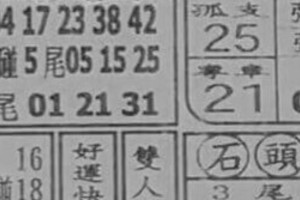 4 17 23 38 42
碰 5 尾 05 15 25
尾 01 21 31
孤支
25
奪章
21
16
18
好運快
雙人
石頭
3 尾